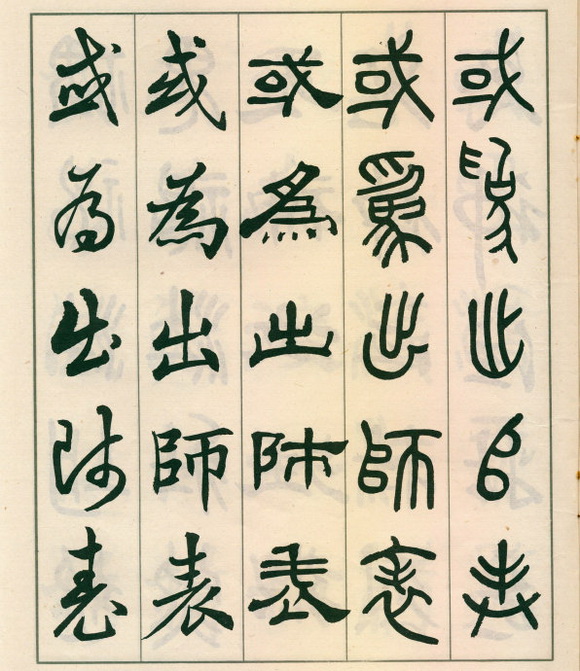 或為出師表
或為出師表
或為出師表
或為出師表
或為出師表